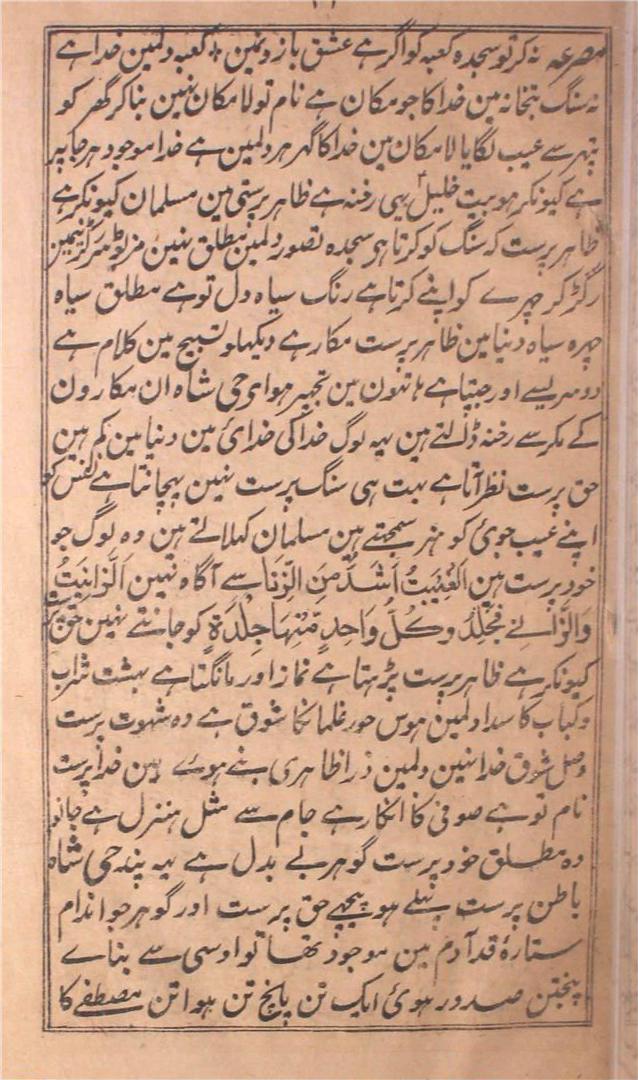 مصرعہ نہ کر تو سجدہ کعبہ کو اگر ہے عشق بازونمین * کعبہ دلمین خدا ہے
نہ سنگ بتخانہ مین خدا کا جو مکان ہے نام تو لامکان نہین بنا کر گھر کو
پتہر سے عیب لگایا لامکان مین خدا کا گہر ہر دلمین ہے خدا موجود ہر جا پر
ہے کیونکر ہو بیت خلیل یہی رفنہ ہے ظاہر پرستی مین مسلمان کیونکر ہے
ظاہر پرست کہ سنگ کو کرتا ہر سجدہ تصور دلمین مطلق نہین
رگڑ کر چہرے کو اپنے کرتا ہے رنگ سیاہ دل تو ہے مطلق سیاہ
چہرہ سیاہ دنیا مین ظاہر پرست مکار ہے دیکہا و تسبیح مین کلام ہے
دوسریسے اور جپتا ہے ہاتہون مین تجہیر ہوای حی شاہ ان مکارون
کے مکر سے رخنہ ڈالتے ہین یہہ لوگ خدا کی خدائ مین دنیا مین کم ہین
حق پرست نظر آتا ہے بہت ہی سنگ پرست نہین پہچانتا ہے نفس کو
اپنے عیب جوئ کو ہنر سمجہتے ہین مسلمان کہلاتے ہین وہ لوگ جو
خود پرست ہین اَلْغِیْبَتُ اَشَدُّ مِنَ الزِّنَا سے آگاہ نہین اَلزَّانِیَتُ
وَالزَّانِیْ فَجْلِدُ وکُلُّ وَاحِدٍ مِّنْہَا جِلْدَةٍ کو جانتے نہین حق پرست
کیونکر ہے ظاہر پرست پڑہتا ہے نماز اور مانگتا ہے بہشت شراب
و کباب کا سدا دلمین ہوس حور غلمانکا شوق ہے وہ شہوت پرست
وصل شوق خدا نہین دلمین ذرا ظاہری بنے ہوے ہین خدا پرست
نام تو ہے صوفی کا انکار ہے جام سے مثل ہنرل ہے جانو
وہ مطلق خود پرست گوہر بے بدل ہے یہ پند حی شاہ
باطن پرست پہلے ہو پیچہے حق پرست اور گوہر جو اندام
ستارۂ قد آدم مین موجود تہا تو اوسی سے بناے
پنجتن صدور ہوئ ایک تن پانچ تن ہوا تن مصطفے کا